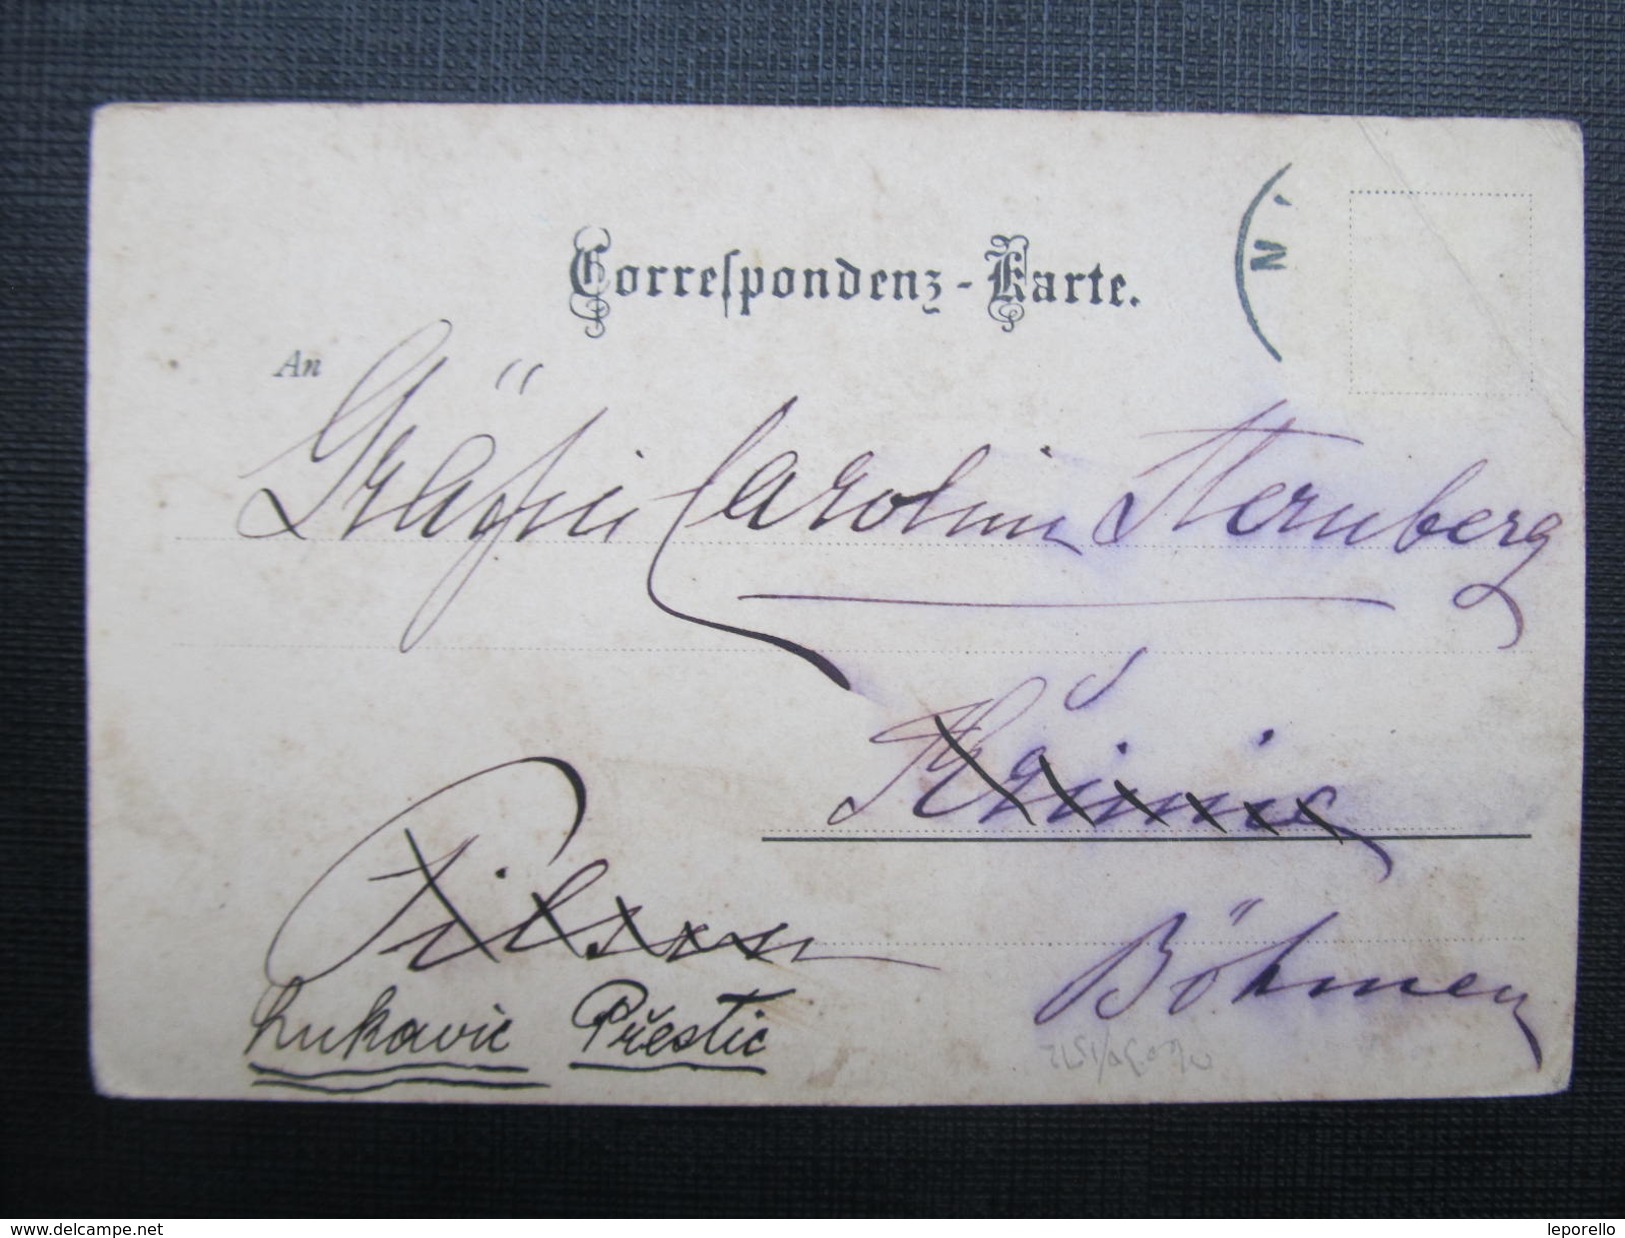 Correſpondenz-Karte.
N
An
Gräfin Carolin Sternberg
Pilsen
Böhmen
Lukavic Přestic
www.delcampe.net
leporello